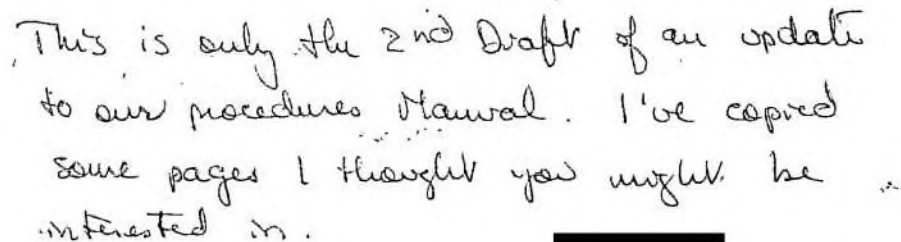 This is only the 2nd Draft of an update
to our procedures Manual. I've copied
some pages I thought you might be
interested in.